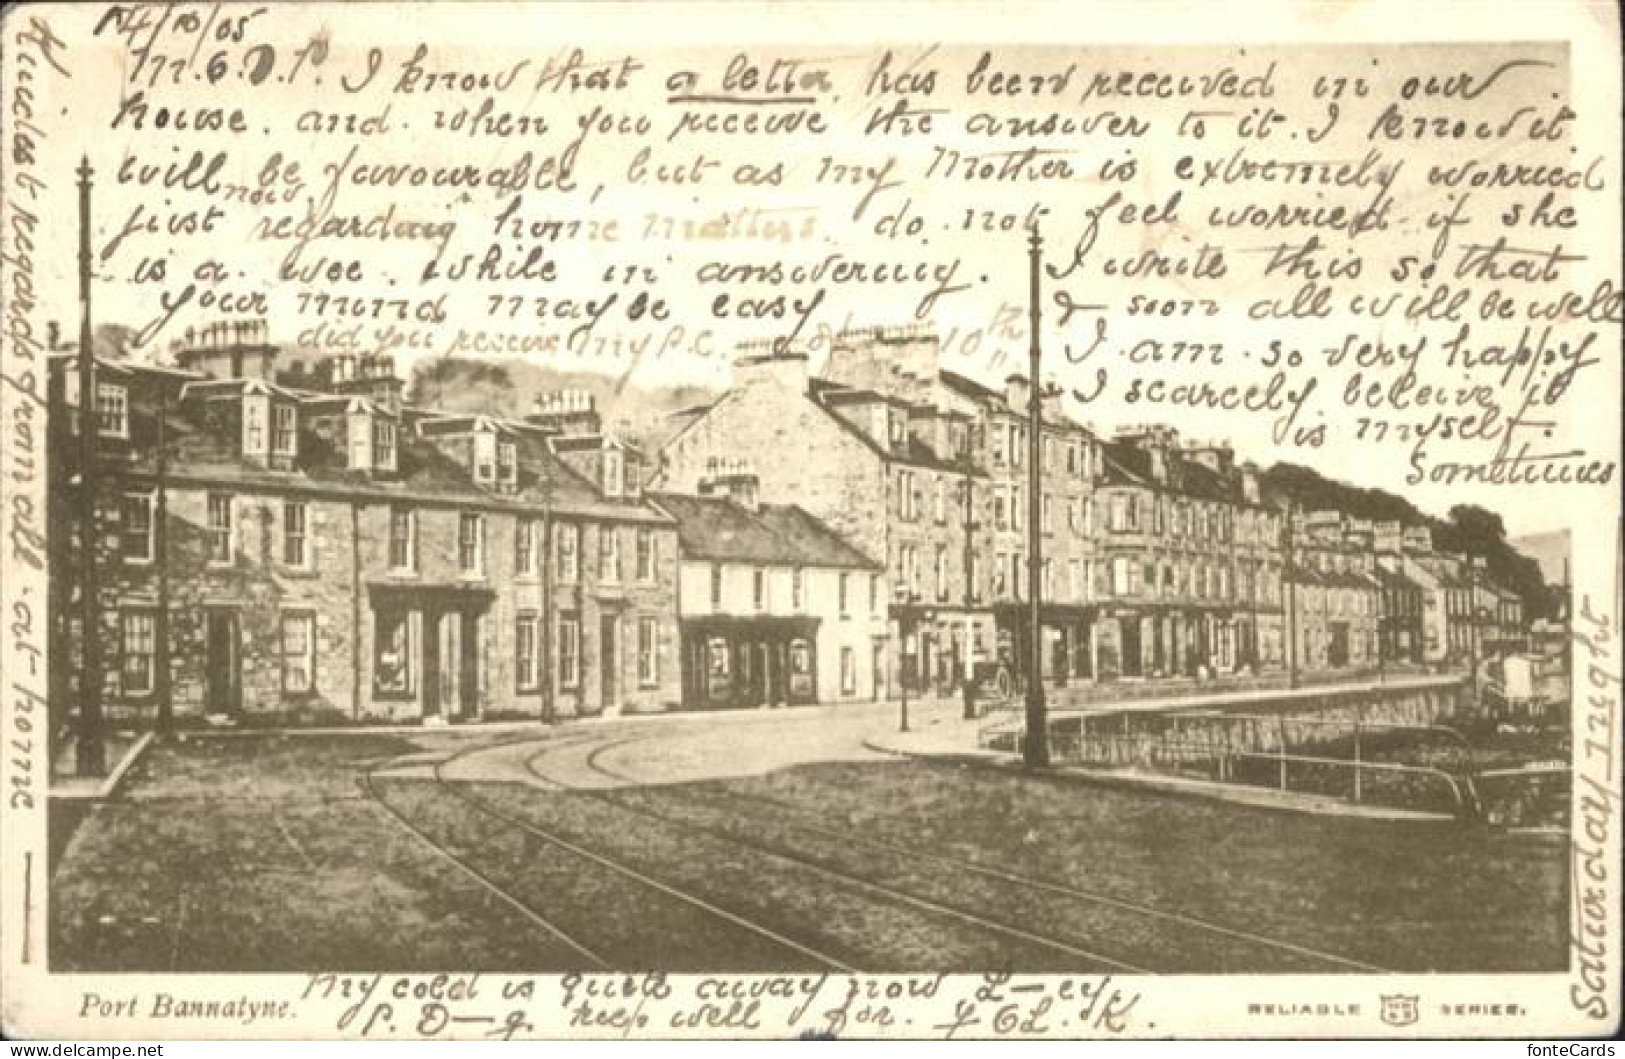 14/10/05
M.G.D.P. I know that a letter has been received in our
house. and. when you receive the answer to it. I know it
will be favourable, but as my Mother is extremely worried
just now regarding home matters. do. not feel worried if she
is a. wee. while in answering. I write this so that
your mind may be easy & soon all will be well
did you receive my P.C. 10th
I. am. so very happy
I scarcely beleive it
is myself.
Sometimes
Saturday night
Kindest regards from all at home
My cold is quite away now L—ey.
P. D—g. keep well for. K.
Port Bannatyne.
RELIABLE WR&S SERIES.
fonteCards